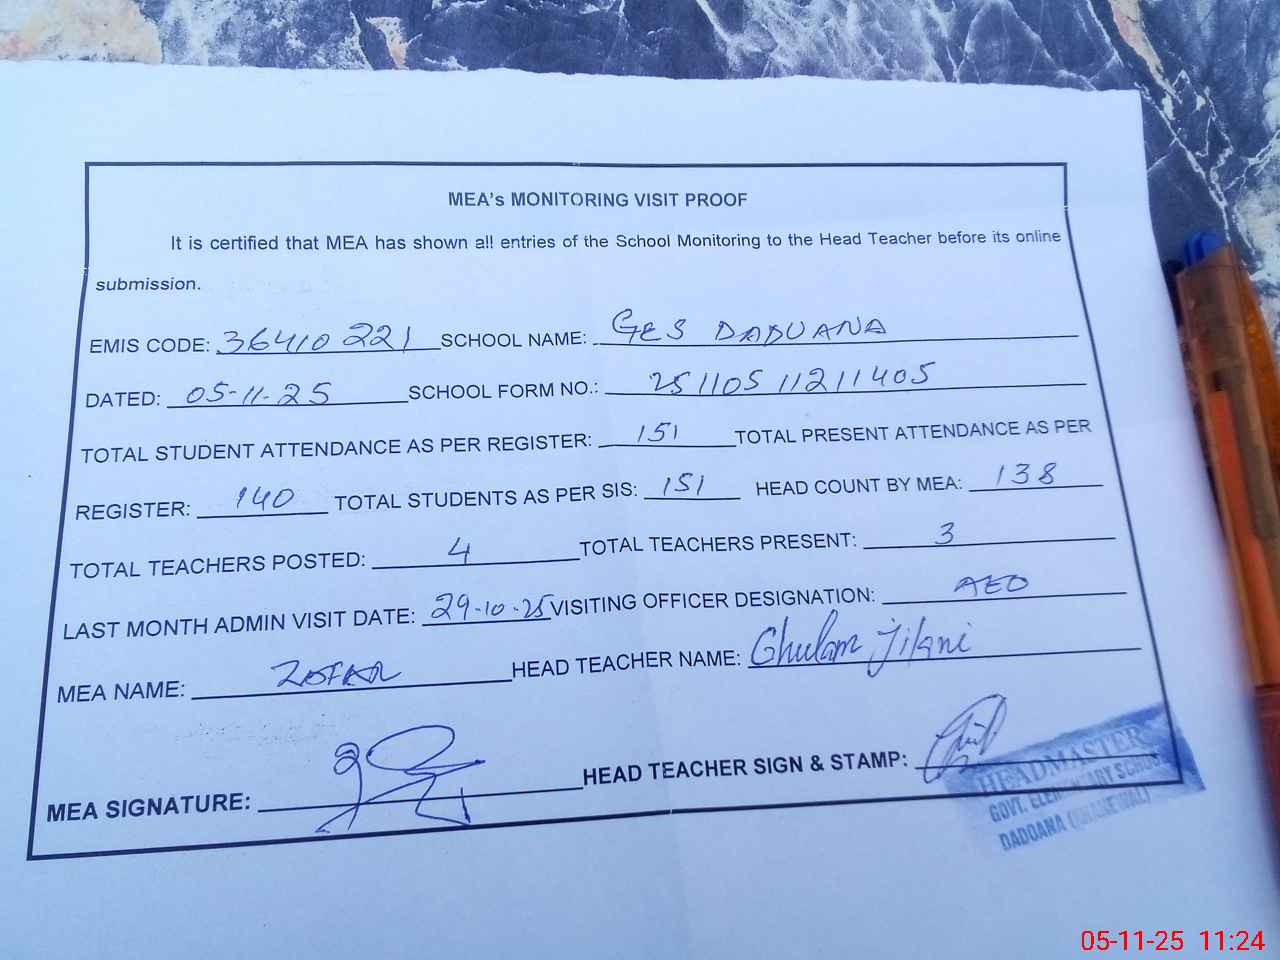 MEA's MONITORING VISIT PROOF
It is certified that MEA has shown all entries of the School Monitoring to the Head Teacher before its online
submission.
EMIS CODE: 36410221 SCHOOL NAME: GES DADUANA
DATED: 05-11-25 SCHOOL FORM NO.: 25110511211405
TOTAL STUDENT ATTENDANCE AS PER REGISTER: 151 TOTAL PRESENT ATTENDANCE AS PER
REGISTER: 140 TOTAL STUDENTS AS PER SIS: 151 HEAD COUNT BY MEA: 138
TOTAL TEACHERS POSTED: 4 TOTAL TEACHERS PRESENT: 3
LAST MONTH ADMIN VISIT DATE: 29-10-25 VISITING OFFICER DESIGNATION: AEO
MEA NAME: HEAD TEACHER NAME: Ghulam Jilani
MEA SIGNATURE: HEAD TEACHER SIGN & STAMP:
HEADMASTER
GOVT. ELEMENTARY SCHOOL
DADOANA (KHANEWAL)
05-11-25 11:24